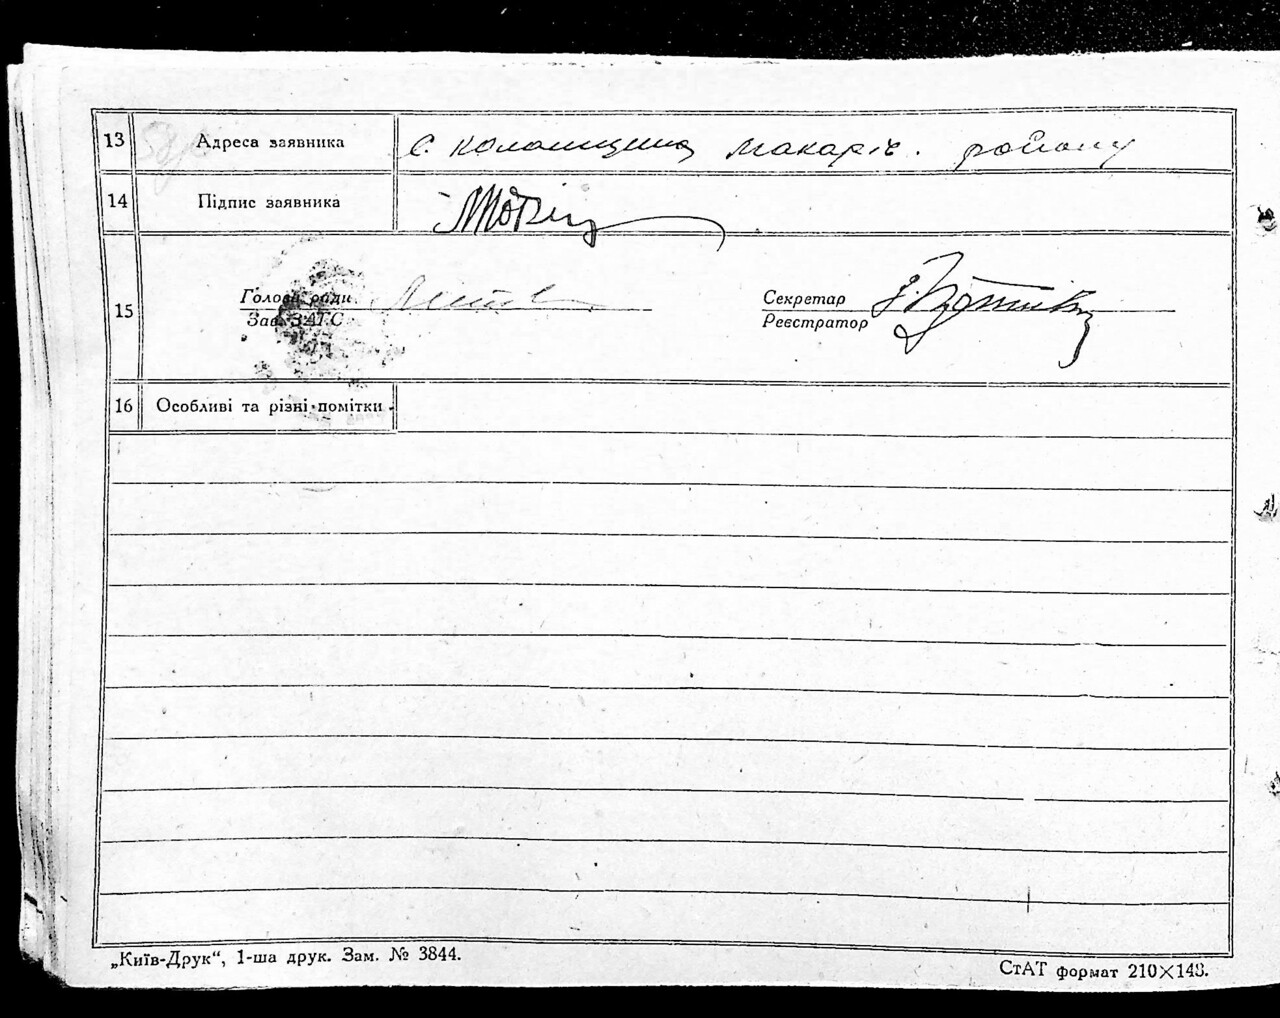 13 Адреса заявника с. Коланщина Макарів. району
14 Підпис заявника
15 Голова ради Секретар
Зав. ЗАГС Реєстратор
16 Особливі та різні помітки
„Київ-Друк“, 1-ша друк. Зам. № 3844.
СтАТ формат 210×148.